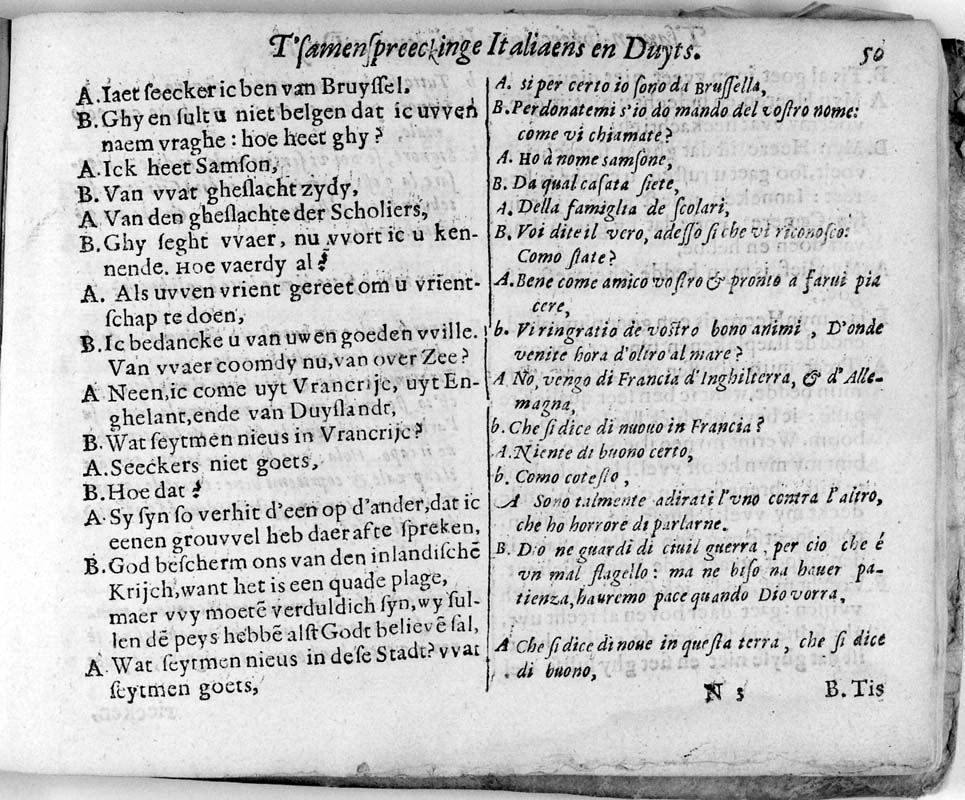 T'samenspreeckinge Italiaens en Duyts. 50
A. Iaet seecker ic ben van Bruyssel.
B. Ghy en sult u niet belgen dat ic uvven
naem vraghe: hoe heet ghy?
A. Ick heet Samson,
B. Van vvat gheslacht zydy,
A. Van den gheslachte der Scholiers,
B. Ghy seght vvaer, nu vvort ic u ken-
nende. Hoe vaerdy al?
A. Als uvven vrient gereet om u vrient-
schap te doen,
B. Ic bedancke u van uwen goeden vville.
Van vvaer coomdy nu, van over Zee?
A Neen, ic come uyt Vrancrijc, uyt En-
ghelant, ende van Duyslandt,
B. Wat seytmen nieus in Vrancrijc?
A. Seeckers niet goets,
B. Hoe dat?
A. Sy syn so verhit d'een op d'ander, dat ic
eenen grouvvel heb daer af te spreken,
B. God bescherm ons van den inlandischē
Krijch, want het is een quade plage,
maer vvy moetē verduldich syn, wy sul-
len dē peys hebbē alst Godt believē sal,
A. Wat seytmen nieus in dese Stadt? vvat
seytmen goets,
A. si per certo io sono da Brussella,
B. Perdonatemi s'io do mando del vostro nome:
come vi chiamate?
A. Ho à nome samsone,
B. Da qual casata siete,
A. Della famiglia de scolari,
B. Voi dite il vero, adesso si che vi riconosco:
Como state?
A. Bene come amico vostro & pronto a farui pia
cere,
b. Vi ringratio de vostro bono animi, D'onde
venite hora d'oltro al mare?
A No, vengo di Francia d'Inghilterra, & d'Alle-
magna,
b. Che si dice di nuouo in Francia?
A. Niente di buono certo,
b. Como cotesto,
A Sono talmente adirati l'vno contra l'altro,
che ho horrore di parlarne.
B. Dio ne guardi di ciuil guerra, per cio che é
vn mal flagello: ma ne biso na hauer pa-
tienza, hauremo pace quando Dio vorra,
A Che si dice di noue in questa terra, che si dice
di buono,
N 3 B. Tis